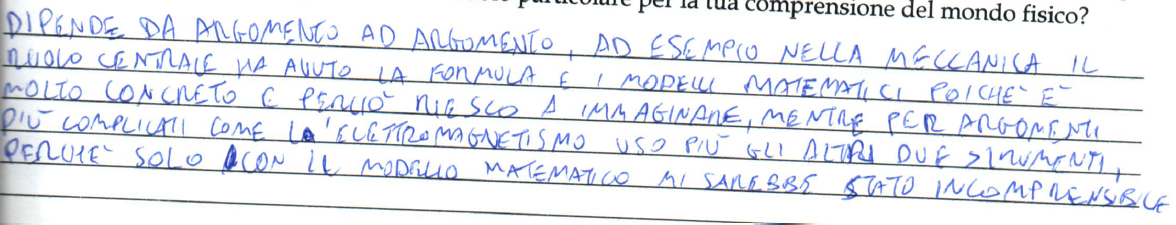 particolare per la tua comprensione del mondo fisico?
DIPENDE DA ARGOMENTO AD ARGOMENTO, AD ESEMPIO NELLA MECCANICA IL
RUOLO CENTRALE HA AVUTO LA FORMULA E I MODELLI MATEMATICI POICHÈ È
MOLTO CONCRETO E PERCIÒ RIESCO A IMMAGINARE, MENTRE PER ARGOMENTI
PIÙ COMPLICATI COME L'ELETTROMAGNETISMO USO PIÙ GLI ALTRI DUE STRUMENTI,
PERCHÈ SOLO CON IL MODELLO MATEMATICO MI SAREBBE STATO INCOMPRENSIBILE